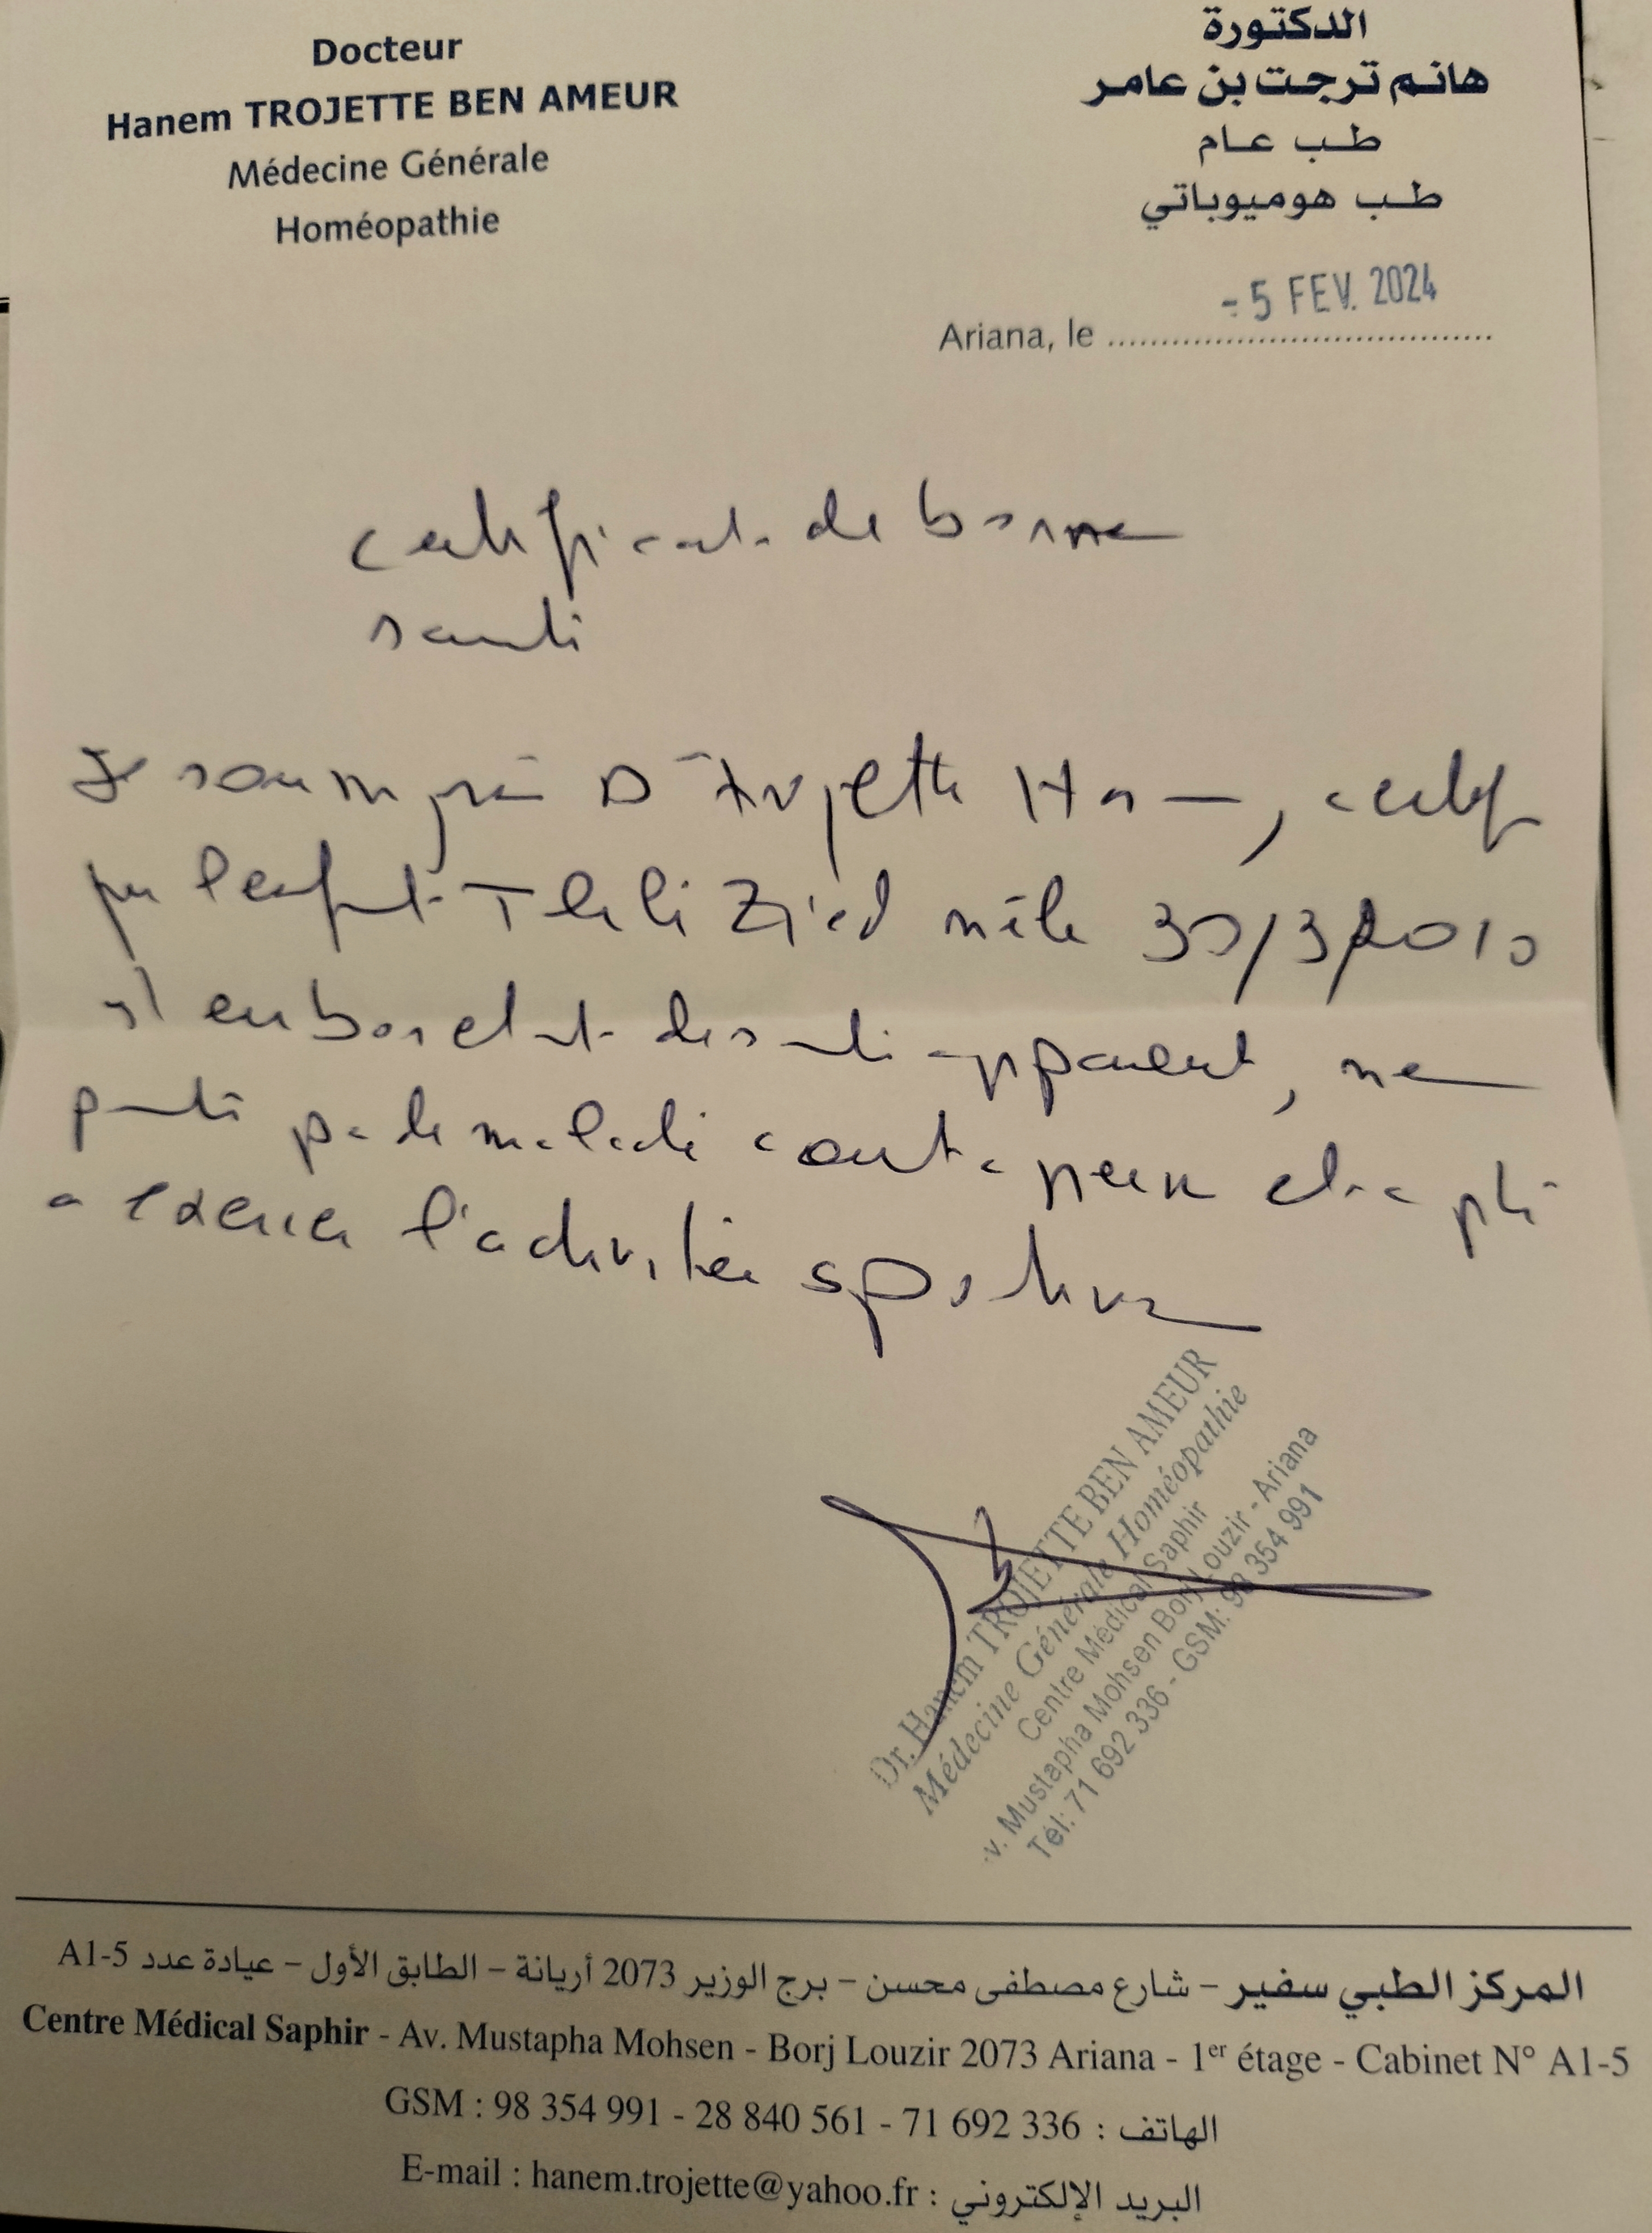 Docteur
Hanem TROJETTE BEN AMEUR
Médecine Générale
Homéopathie
الدكتورة
هانم ترجت بن عامر
طب عام
طب هوميوباتي
- 5 FEV. 2024
Ariana, le
certificat de bonne
santé
Je soussigné Dr Trojette, certifie
que l'enfant Tlili Zied né le 30/3/2010
est en bon état de santé apparent, ne
porte pas de maladie contagieuse et apte
a exercer l'activitée sportive
Dr. Hanem TROJETTE BEN AMEUR
Médecine Générale Homéopathie
Centre Médical Saphir
v. Mustapha Mohsen Borj Louzir - Ariana
Tél: 71 692 336 - GSM: 98 354 991
المركز الطبي سفير – شارع مصطفى محسن – برج الوزير 2073 أريانة – الطابق الأول – عيادة عدد A1-5
Centre Médical Saphir - Av. Mustapha Mohsen - Borj Louzir 2073 Ariana - 1er étage - Cabinet N° A1-5
GSM : 98 354 991 - 28 840 561 - 71 692 336 : الهاتف
E-mail : hanem.trojette@yahoo.fr : البريد الإلكتروني